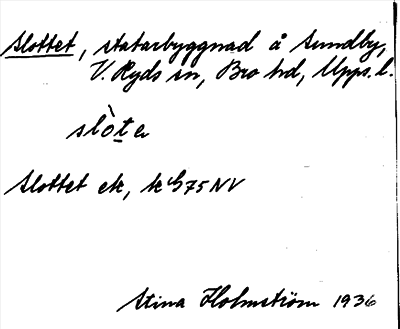 Slottet, statarbyggnad å Sundby,
V. Ryds sn, Bro hd, Upps. l.
slò̱te
Slottet ek, k G75 NV
Stina Holmström 1936